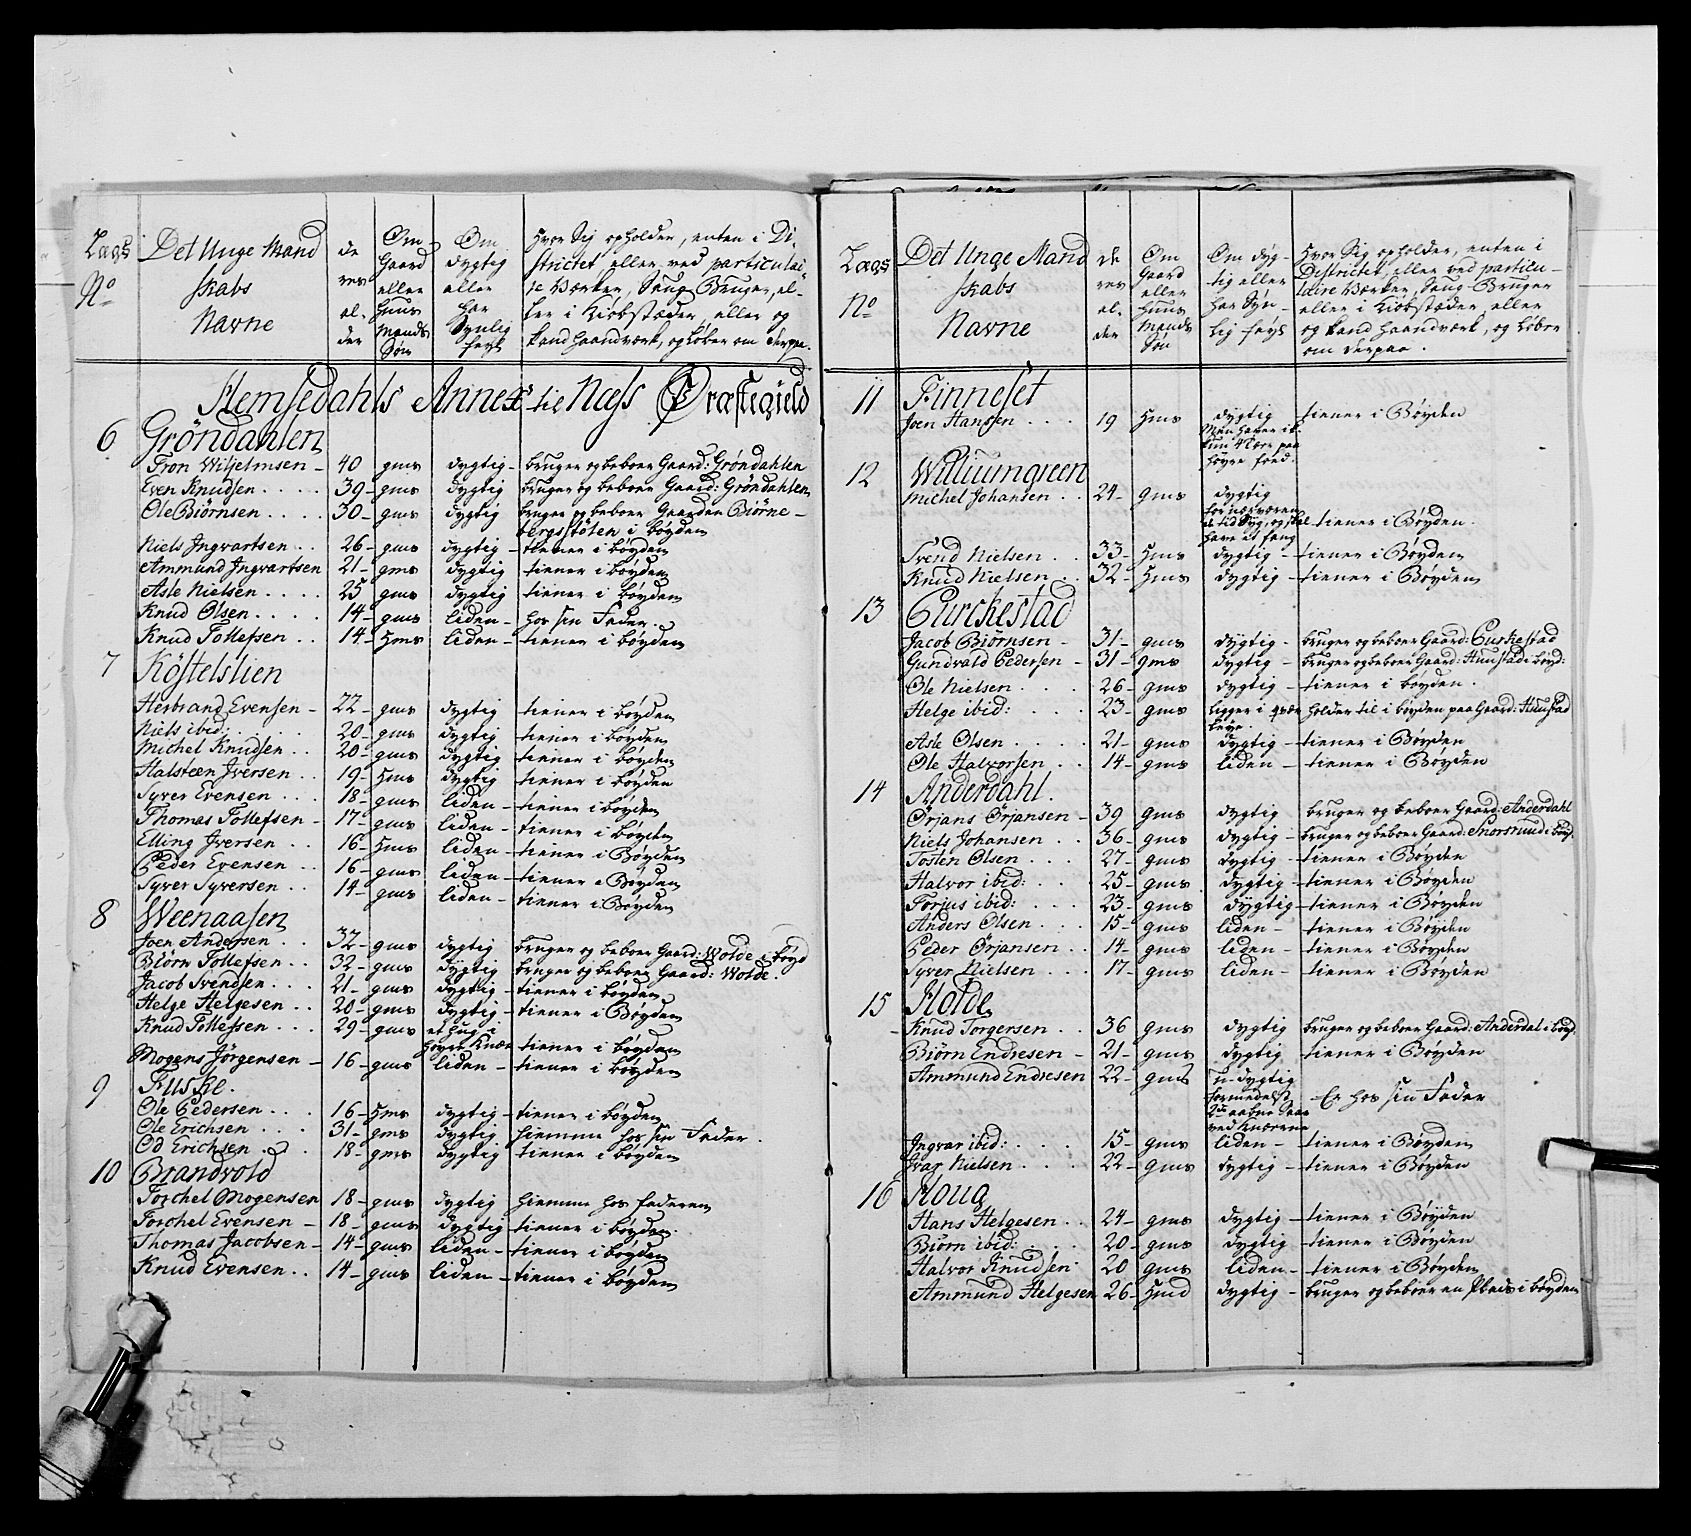 Lægs No | Det Unge Mandskabs Navne | deres alder | Om Gaard eller Huus Mands Søn | Om dygtig eller har Synlig feyl | Hvor Sig opholder, enten i Districtet, eller ved particulaire Værker, Saug-Bruger, eller i Kiøbstæder, eller og kand haandværk, og løber om derpaa.
Hemsedahls Annex til Næss Præstegield
6 Gröndahlen
Tron Wiljelmsen - 40 gms dygtig - bruger og beboer Gaard: Grøndahlen
Even Knudsen .... 39 - gms dygtig bruger og beboer Gaard: Grøndahlen
Ole Biörnsen .... 30 - gms dygtig bruger og beboer Gaarden Biørne-
bergsstöten i bøyden
Niels Jngvartsen .. 26 - gms dygtig - tiener i bøyden
Ammund Jngvartsen 21 - gms dygtig tiener i bøyden
Asle Nielsen .... 25 gms dygtig tiener i bøyden
Knud Olsen .... 14 - gms liden - hos sin Fader.
Knud Tollefsen .. 14 - Hms liden - tiener i bøyden
7 Köstelslien
Herbrand Evensen - 22 - gms dygtig tiener i bøyden
Niels ibid: .... 20 - gms dygtig tiener i bøyden
Michel Knudsen .. 20 - gms dygtig tiener i bøyden
Halsteen Jversen .. 19 - Hms dygtig tiener i bøyden
Syver Evensen ... 18 - gms liden - tiener i bøyden
Thomas Tollefsen - 17 - gms liden - tiener i bøyden
Elling Jversen .. 16 - Hms liden - tiener i Bøyden
Peder Evensen .. 16 - gms liden - tiener i Bøyden
Syver Syversen .. 14 - gms liden - tiener i Bøyden
8 Weenaasen
Joen Andersen .. 32 - gms dygtig bruger og beboer Gaard: Wolde i bøyd
Biörn Tollefsen .. 32 - gms dygtig bruger og beboer Gaard: Wolde.
Jacob Svendsen ... 21 - gms dygtig - tiener i bøyden
Helge Helgesen .. 20 - gms dygtig - tiener i Bøyden
Knud Tollefsen ... 29 - gms et hug i høyre Knæe tiener i bøyden
Mogens Jörgensen - 16 - gms liden - tiener i bøyden
9 Fuske.
Ole Pedersen ... 16 - Hms dygtig - tiener i bøyden
Ole Erichsen ... 31 - gms dygtig hiemme hos sin Fader.
Od Erichsen ... 18 - gms dygtig tiener i bøyden
10 Brandvold
Torchel Mogensen 18 - gms dygtig hiemme hos faderen
Torchel Evensen - 18 - gms dygtig - tiener i bøyden.
Thomas Jacobsen - 14 - gms liden - tiener i bøyden
Knud Evensen .. 14 - gms liden - tiener i bøyden
Lægs No | Det Unge Mandskabs Navne | deres alder | Om Gaard eller Huus Mands Søn | Om dygtig eller har Synlig feyl | Hvor Sig opholder, enten i Districtet, eller ved particulaire Værker, Saug-Bruger eller i Kiøbstæder, eller og kand haandværk, og løber om derpaa.
11 Finneset
Joen Hanssen .... 19 Hms dygtig tiener i Bøyden
Men haver
høyre foed.
12 Williumgreen
Michel Johansen .. 24 - gms dygtig
tiener i Bøyden.
Svend Nielsen .. 33 - Hms dygtig - tiener i Bøyden
Knud Nielsen .. 32 - Hms dygtig - tiener i Bøyden
13 Eurckestad
Jacob Biörnsen - 31 - gms dygtig - bruger og beboer Gaard: Euskestad
Gundvald Pedersen - 31 - gms dygtig - bruger og beboer Gaard: Hunstad i bøyd:
Ole Nielsen .... 26 - gms dygtig - tiener i bøyden.
Helge ibid: .... 23 - gms ligger i holder til i bøyden paa Gaard: Hunstad
Asle Olsen .... 21 - gms dygtig - tiener i Bøyden
Ole Halvorsen .. 14 - gms liden - tiener i Bøyden
14 Anderdahl.
Örjans Örjansen - 39 gms dygtig bruger og beboer Gaard: Anderdahl
Niels Johansen .. 36 - gms dygtig - bruger og beboer Gaard: Snorsrund i bøyd.
Tosten Olsen ... 27 - gms dygtig - tiener i Bøyden
Halvor ibid: .... 25 - gms dygtig - tiener i Bøyden
Torjus ibid: .... 23 - gms dygtig - tiener i Bøyden
Anders Olsen ... 15 - gms liden - tiener i Bøyden
Peder Örjansen .. 14 - gms liden - tiener i Bøyden
Syver Nielsen ... 17 - gms liden - tiener i Bøyden
15 Holde
Knud Torgersen .. 36 gms dygtig bruger og beboer Gaard: Anderdal i bøyd.
Biörn Endresen - 21 - gms dygtig tiener i Bøyden
Ammund Endresen 22 - gms U-dygtig formedelst 2de aabne Saar ved Knæerne - Er hos sin Fader
Jngvar ibid: .... 15 - gms liden - tiener i Bøyden
Jvar Nielsen .... 22 - gms dygtig - tiener i Bøyden
16 Houg
Hans Helgesen .. 24 - gms dygtig - tiener i Bøyden
Biörn ibid: .... 20 - gms dygtig - tiener i Bøyden
Halvor Knudsen 20 gms liden - tiener i Bøyden
Ammund Helgesen 26 - Hmd dygtig - bruger og beboer en Plads i bøyden